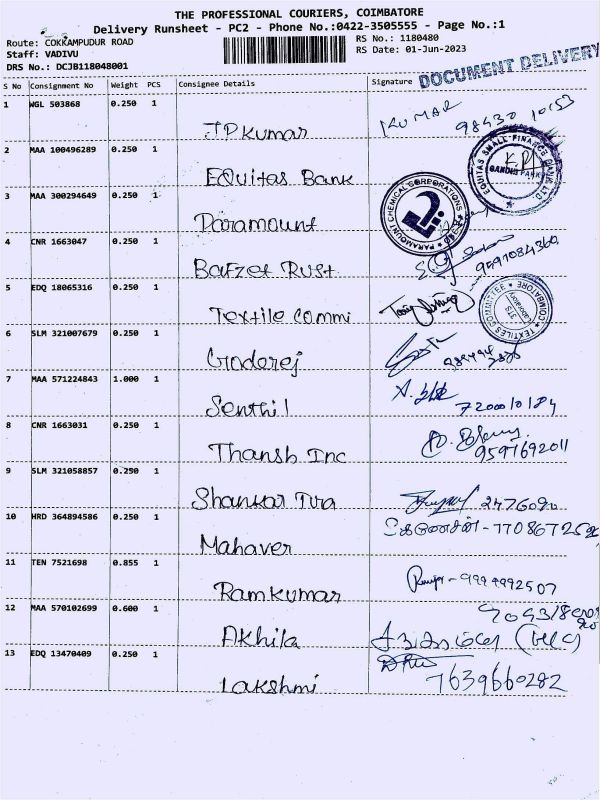 THE PROFESSIONAL COURIERS, COIMBATORE
Delivery Runsheet - PC2 - Phone No.:0422-3505555 - Page No.:1
Route: COKKAMPUDUR ROAD
RS No.: 1180480
Staff: VADIVU
RS Date: 01-Jun-2023
DRS No.: DCJB118048001
DOCUMENT DELIVERY
S No Consignment No Weight PCS Consignee Details Signature
1 WGL 503868 0.250 1
JPKumar KUMAR 98430 10153
2 MAA 100496289 0.250 1
EQuitas Bank
EQUITAS SMALL FINANCE BANK LTD
GANDHI PARK
3 MAA 300294649 0.250 1
Paramount
PARAMOUNT CHEMICAL CORPORATIONS
4 CNR 1663047 0.250 1
9597084360
5 EDQ 18065316 0.250 1
Textile Commi
TEXTILES COMMITTEE COIMBATORE
6 SLM 321007679 0.250 1
Goderej
7 MAA 571224843 1.000 1
Senthil 7200010184
8 CNR 1663031 0.250 1
Thansh Inc 9597692011
9 SLM 321058857 0.250 1
Shankar 2476090
10 HRD 364894586 0.250 1
Mahaver
11 TEN 7521698 0.855 1
Ramkumar
12 MAA 570102699 0.600 1
Akhila
13 EDQ 13470409 0.250 1
Lakshmi 7639660282